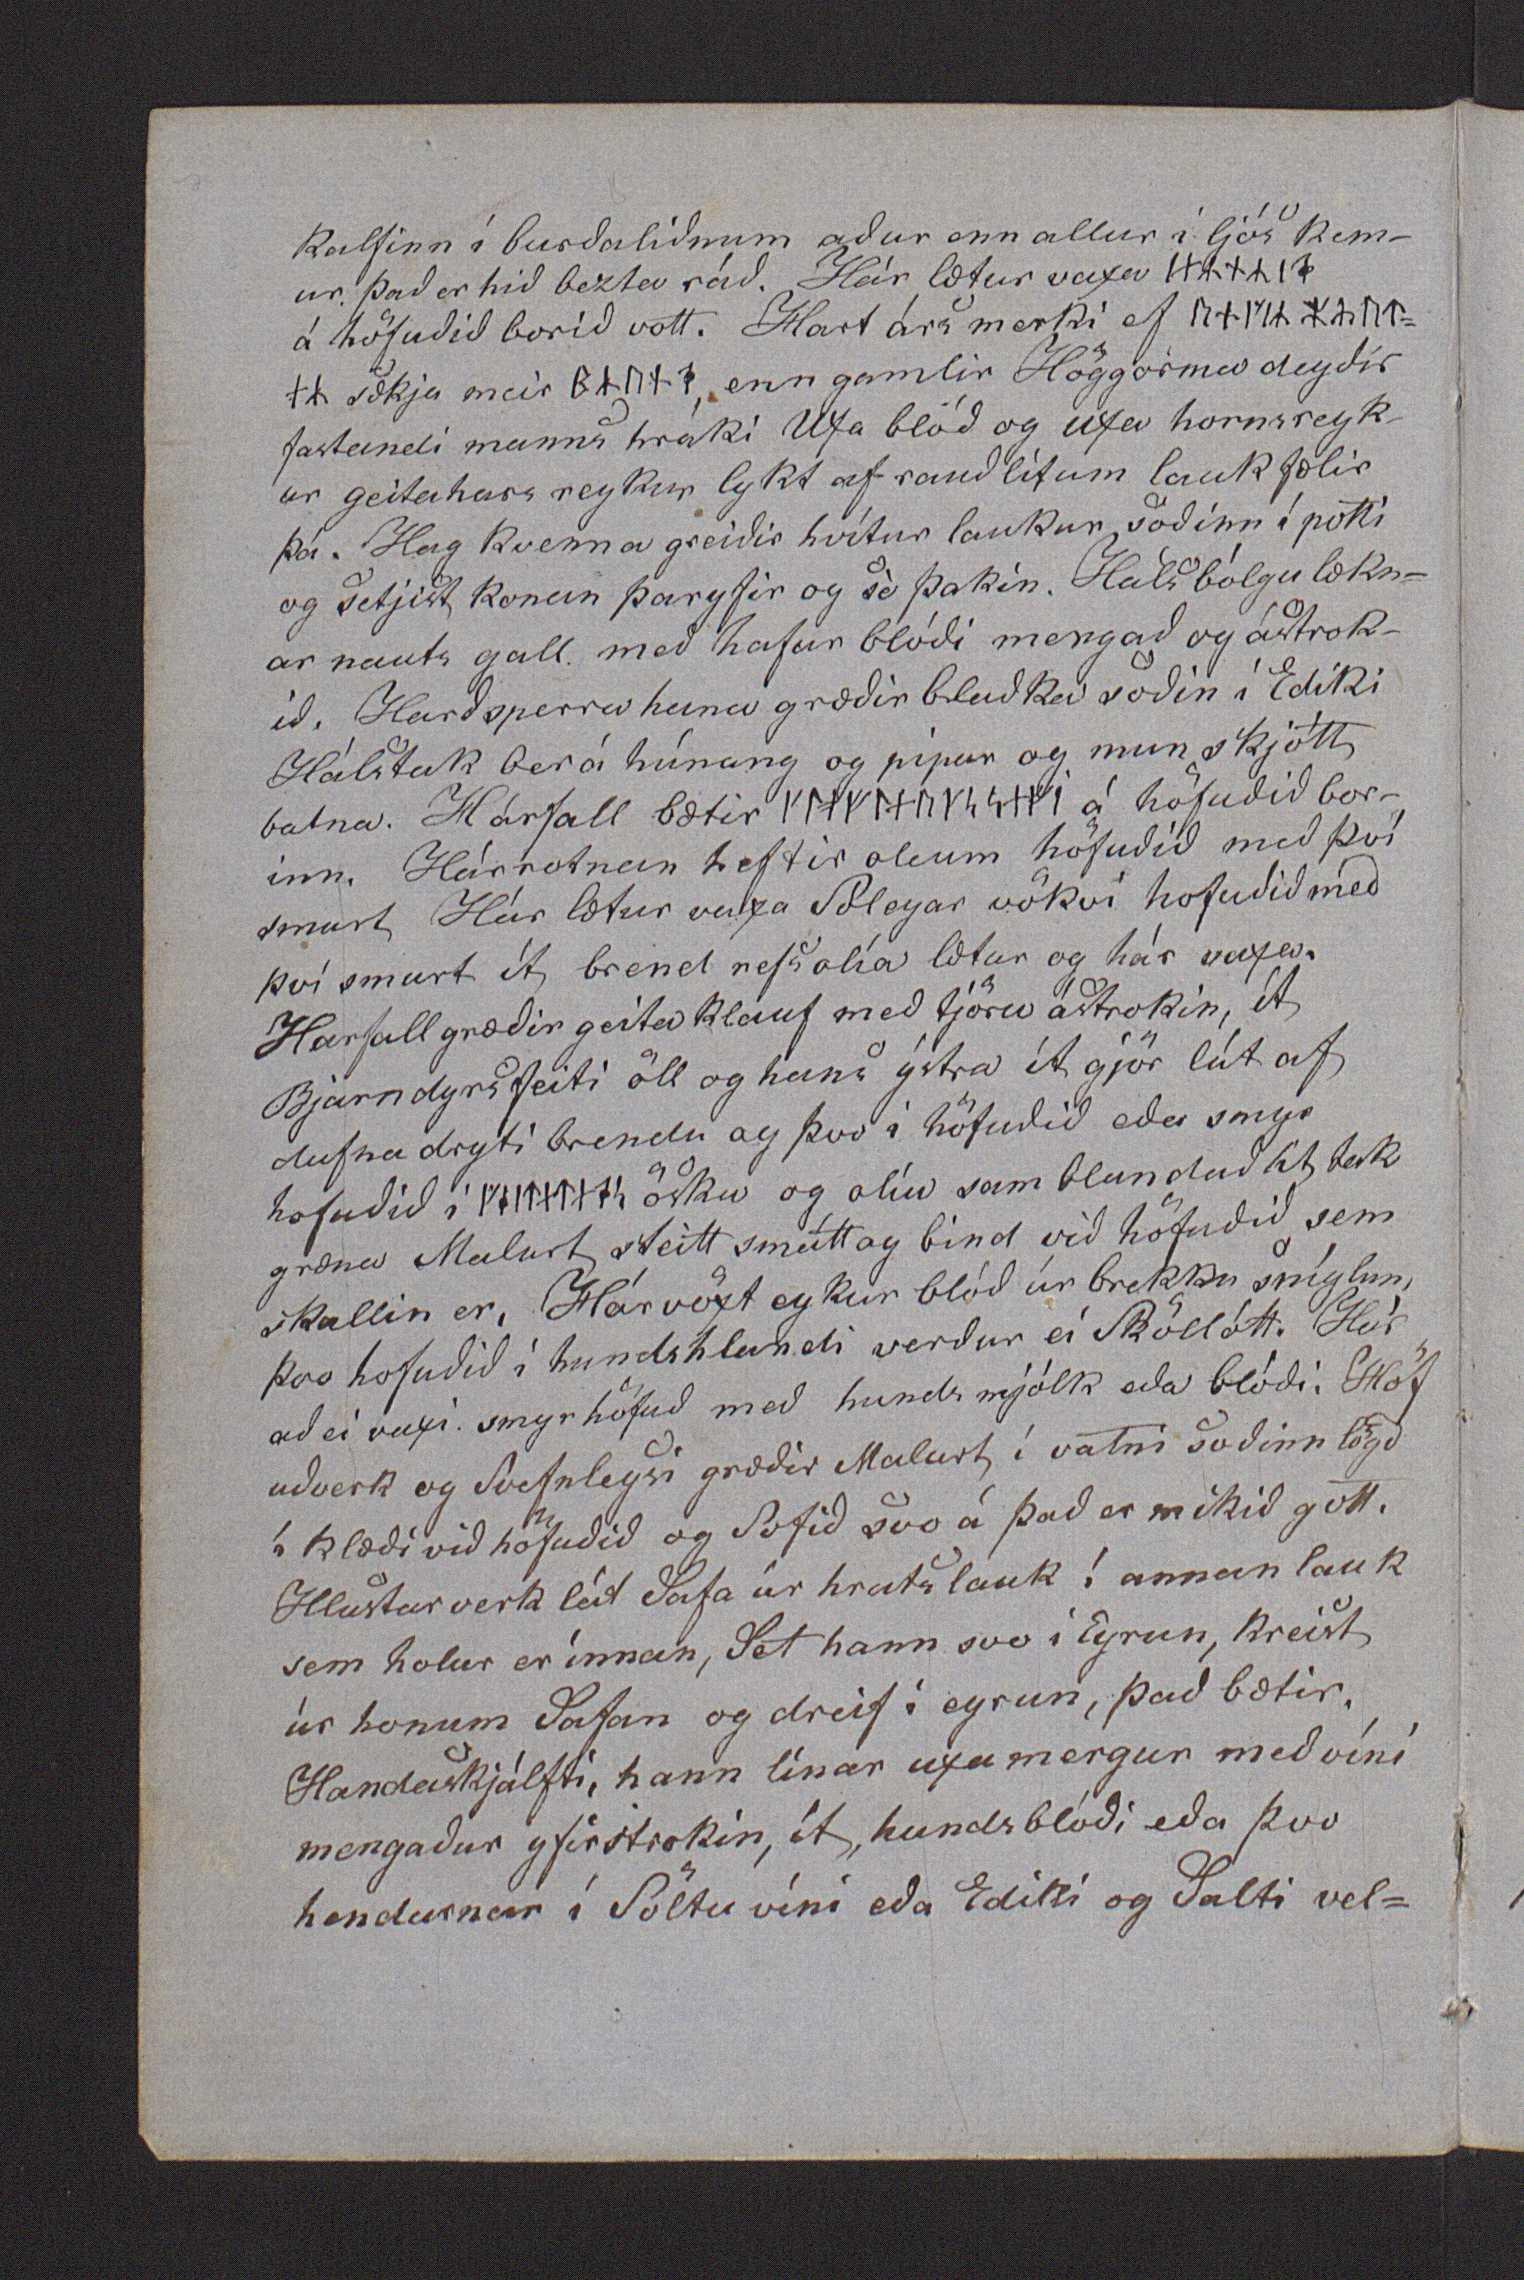 Kalfinn í burðaliðnum aður enn allur í ljós kem-
ur. það er hið bezta ráð. Hár lætur vaxa
á höfuðið borið vott. Hart árs merki ef
sækja meir enn gamlir Höggorma deyðir
fastandi manns hráki Uxa blóð og uxa hornsreyk-
ur geitahars reykur lykt af rauðlitum lauk fælir
þá. Hag kvenna greiðir hvítur laukur soðinn í potti
og setjist konan þaryfir og sé þakin. Háls bólgu lækn=
ar nauts gall. með hafur blóði mengað og ástrok-
ið. Harðsperra hana græðir blaðka soðin í Ediki
Hálstak ber á húnang og pipar og mun skjótt
batna. Hárfall bætir á höfuðið bor-
inn. Hárrotnan heftir oleum höfuðið með því
smurt Hár lætur vaxa Sóleyar vökvi hofuðið með
því smurt ít brend refs olía lætur og hár vaxa.
Harfall græðir geita klauf með tjöru ástrokin, ít
Bjarndyrs feiti öll og hans ýstra ít gjör lút af
dufna dryti brendu og þvo í höfuðið eða smyr
hofuðið í ösku og olíu samblandað ít tak
græna Malurt steitt smátt og bind við höfuðið sem
skallin er, Hárvöxt eykur blóð úr brekku sniglum,
þvo hofuðið í hundshlandi verður ei Sköllótt. Hár
að ei vaxi. smyr höfuð með hunds mjólk eða blóði. Höf
uðverk og Svefnleysi græðir Malurt í vatni soðinn lögð
í klæði við höfuðið og Sofið svo á það er mikið gott.
Hlustarverk lát Safa úr hrats lauk í annan lauk
sem holur er innan, Set hann svo í Eyrun, kreist
úr honum Safan og dreif í eyrun, það bætir.
Handaskjálfti, hann línar uxa mergur með víni
mengaður yfirstrokin, ít, hundsblóði eða þvo
hendurnar í Söltu víni eða Ediki og Salti vel=